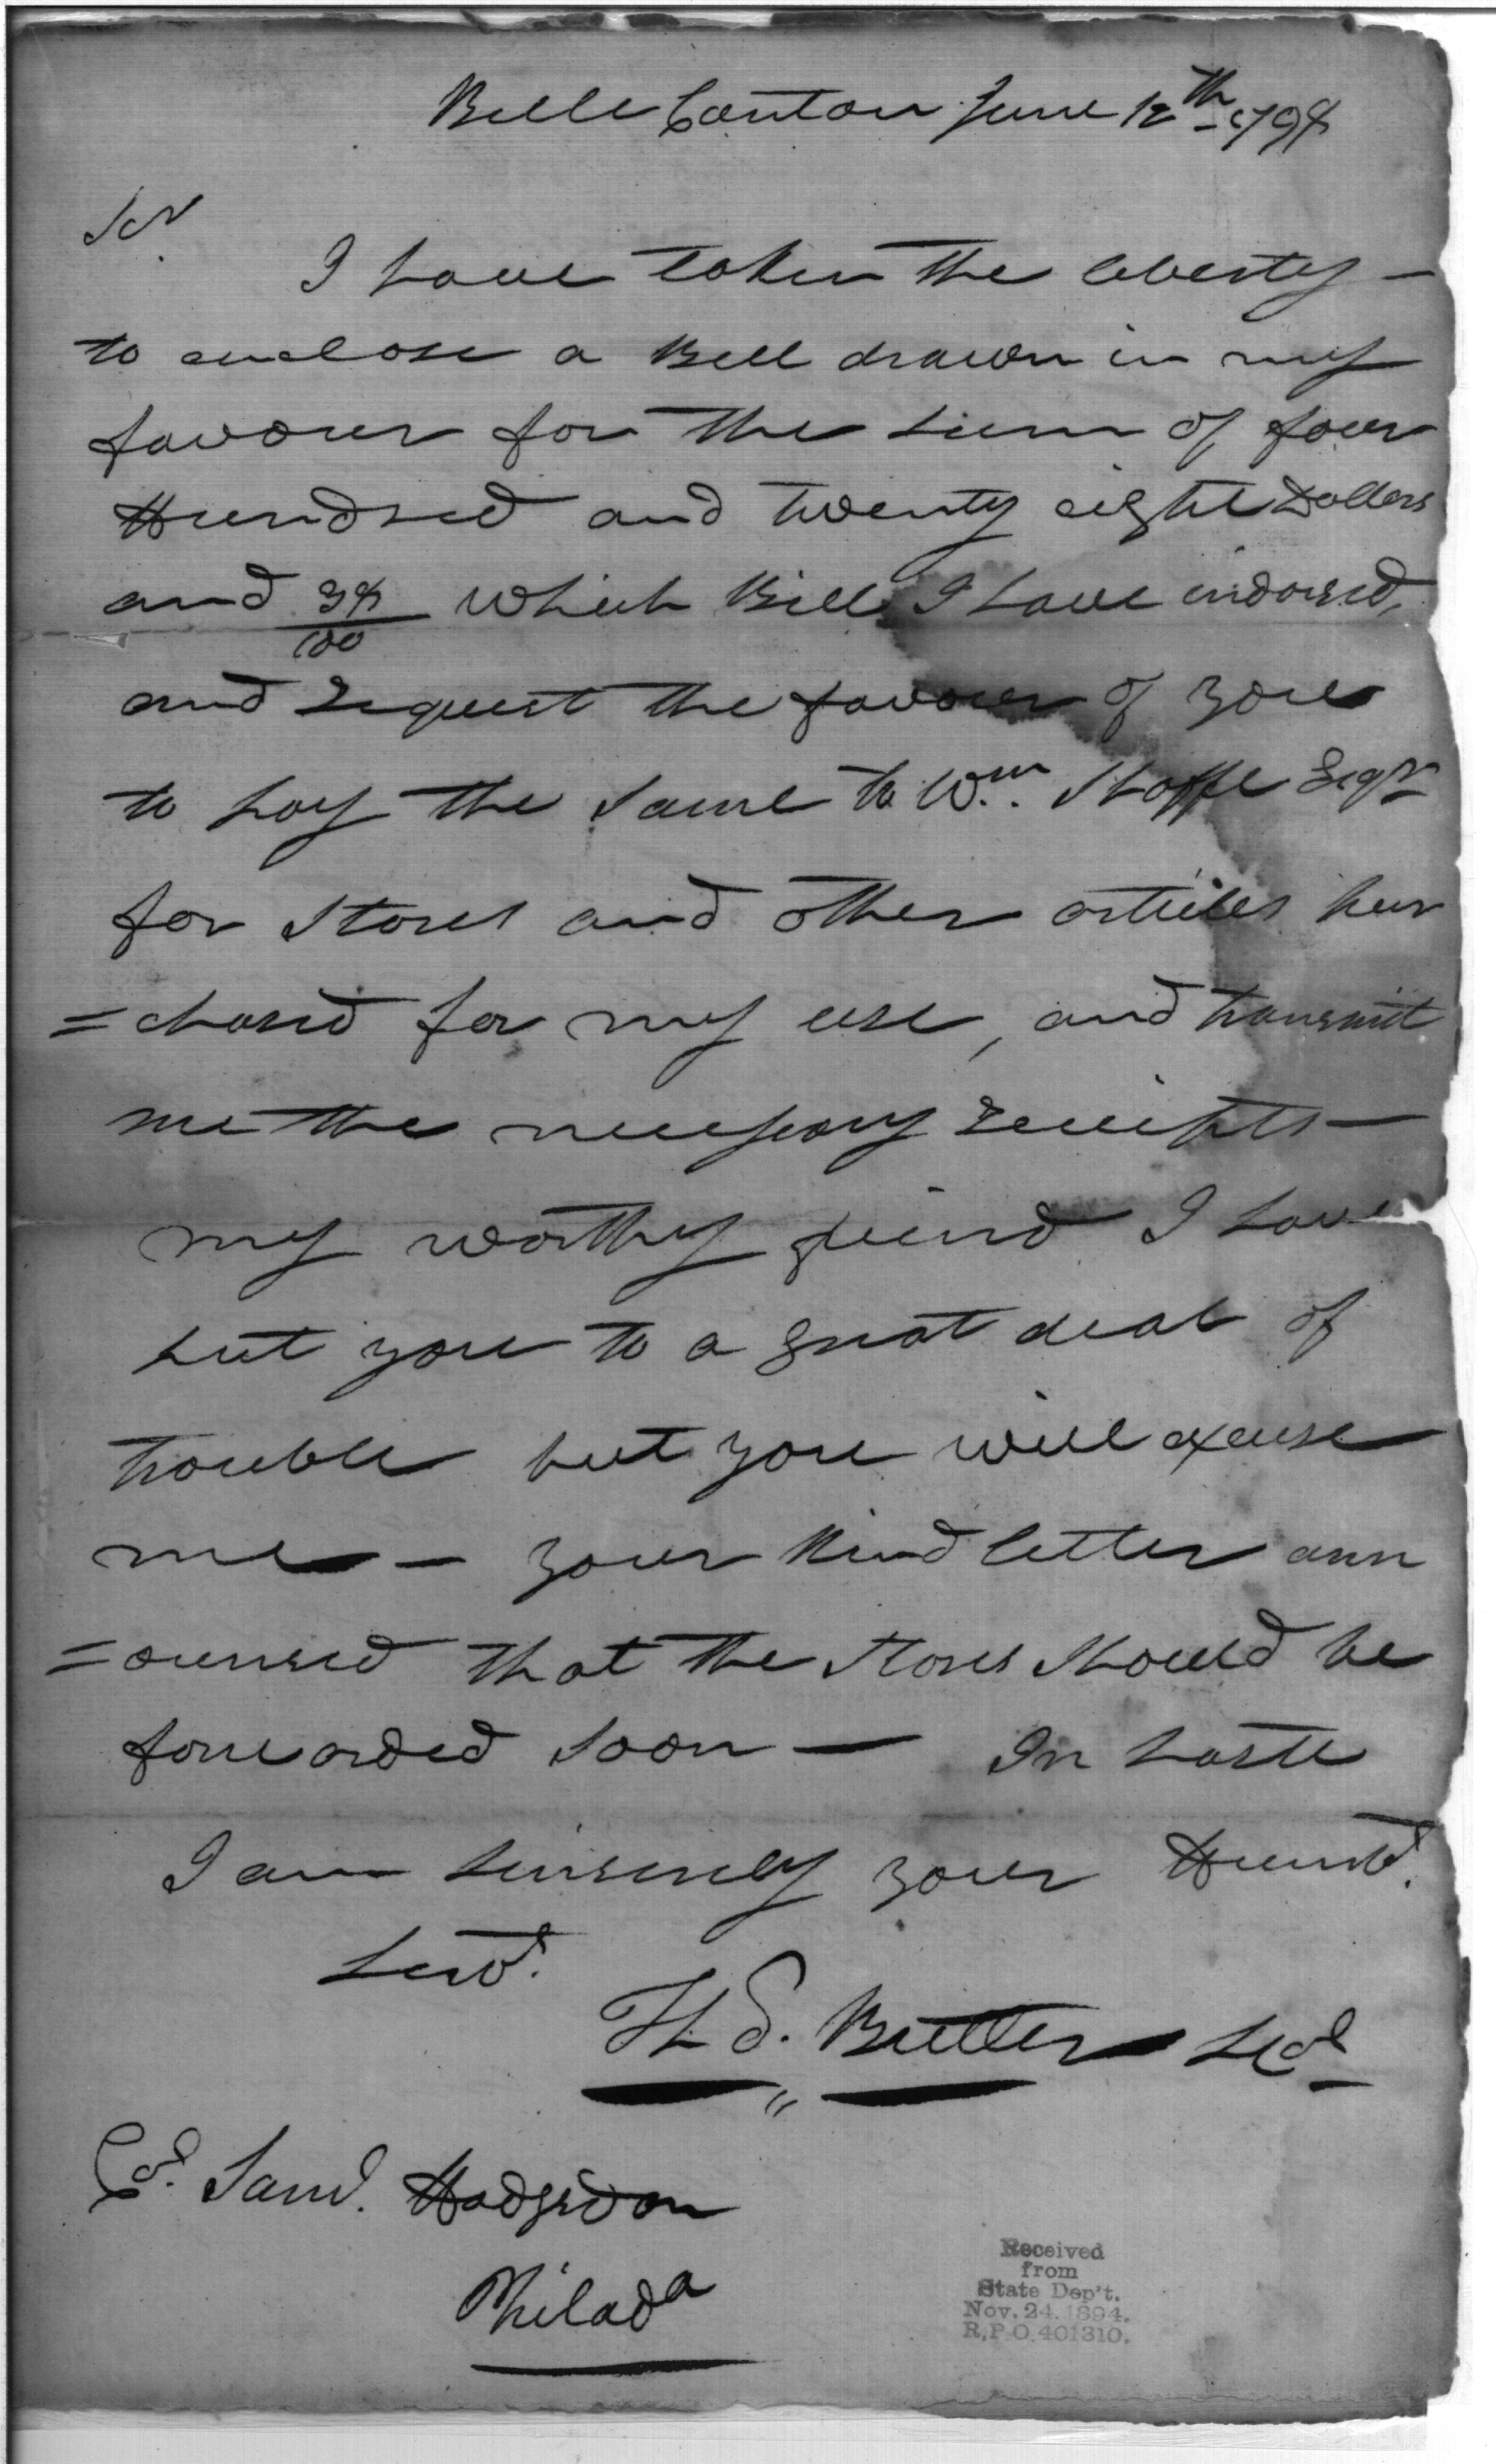 Belle Canton June 12th 1798
Sir.
I have taken the liberty –
to enclose a Bill drawn in my
favour for the sum of four
Hundred and twenty eight Dollers
and 34/100 which Bill I have endorsed,
and request the favour of you
to pay the same to Wm. Shoffe Esqr
for stores and other articles pur
=chased for my use, and transmit
me the necessary receipts –
my worthy friend I have
put you to a great deal of
trouble but you will excuse
me – your kind letter ann
=ounsed that the stores should be
forwarded soon – In haste
I am sinserely your Humbl.
Servt.
Butler
Col. Saml. Hodgsdon
Philada
Received
from
State Dep't.
Nov. 24. 1894.
R.P.O. 401310.